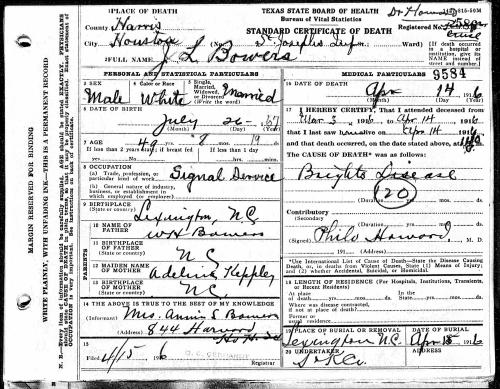 PLACE OF DEATH
TEXAS STATE BOARD OF HEALTH
Bureau of Vital Statistics
STANDARD CERTIFICATE OF DEATH
County Harris
City Houston
St Josephs Infm. (Ward)
FULL NAME J L Bowers
(If death occurred in a hospital or institution, give its NAME instead of street and number.)
Registered No.
PERSONAL AND STATISTICAL PARTICULARS
3 SEX Male
4 Color or Race White
5 Single, Married, Widowed, or Divorced (Write the word) Married
6 DATE OF BIRTH July 26 - 67
(Month) (Day) (Year)
7 AGE 49 8 19 ds.
If less than 2 years state if breast fed
If less than 1 day
Yes No hrs. min.
8 OCCUPATION
(a) Trade, profession, or particular kind of work Signal Service
(b) General nature of industry, business, or establishment in which employed (or employer)
9 BIRTHPLACE (State or country) Lexington, N.C.
PARENTS
10 NAME OF FATHER W H Bowers
11 BIRTHPLACE OF FATHER (State or country) N C
12 MAIDEN NAME OF MOTHER Adeline Keppley
13 BIRTHPLACE OF MOTHER (State or country) N C
14 THE ABOVE IS TRUE TO THE BEST OF MY KNOWLEDGE
(Informant) Mrs. Annie S Bowers
(Address) 844 Harvard
15
Filed 4/15 1916
Registrar
MEDICAL PARTICULARS
9584
16 DATE OF DEATH Apr 14 1916
(Month) (Day) (Year)
17 I HEREBY CERTIFY, that I attended deceased from
Mar 3 1916 to Apr 14 1916
that I last saw h alive on Apr 14 1916
and that death occurred, on the date stated above, at m.
The CAUSE OF DEATH* was as follows:
Brights Disease
120
(Duration) yrs. mos. ds.
Contributory
(Secondary)
(Duration) yrs. mos. ds.
(Signed) Philo Howard, M. D.
191 (Address)
*Use International List of Causes of Death—State the Disease Causing Death, or, in deaths from Violent Causes, State (1) Means of Injury; and (2) whether Accidental, Suicidal, or Homicidal.
18 LENGTH OF RESIDENCE (For Hospitals, Institutions, Transients, or Recent Residents)
At place of death yrs. mos. ds. State yrs. mos. ds.
Where was disease contracted, if not at place of death?
Former or usual residence
19 PLACE OF BURIAL OR REMOVAL Lexington N.C.
DATE OF BURIAL Apr 15 1916
20 UNDERTAKER
ADDRESS
MARGIN RESERVED FOR BINDING
WRITE PLAINLY, WITH UNFADING INK—THIS IS A PERMANENT RECORD